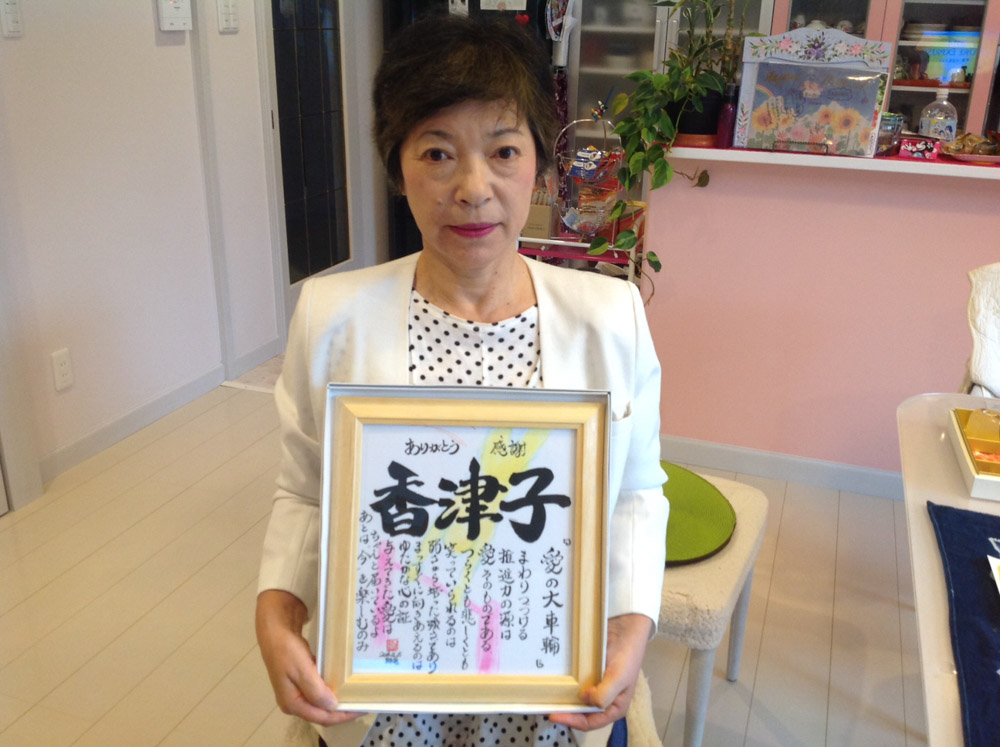 ありがとう 感謝
香津子
『愛の大車輪』
まわりつづける
推進力の源は
愛そのものである
つらくとも悲しくとも
笑っていられるのは
弱さから培った強さであり
まっすぐに向きあえるのは
ゆたかな心の証
与えてきた愛は
ちゃんと届いているよ
あとは今を楽しむのみ